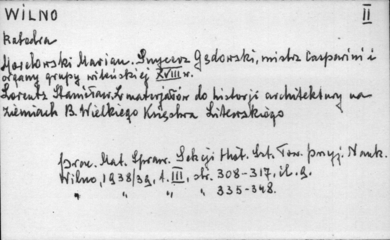 WILNO II
Katedra
Morelowski Marian. Snycerz Gędowski, mistrz Casparini i
organy grupy wileńskiej XVIII w.
Lorentz Stanisław. Z materjałów do historji architektury na
ziemiach B. Wielkiego Księstwa Litewskiego
Prac. Mat. Spraw. Sekcji Hist. Szt. Tow. Przyj. Nauk.
Wilno, 1938/39, t. III, str. 308-317, il. 9.
" " " 335-348.